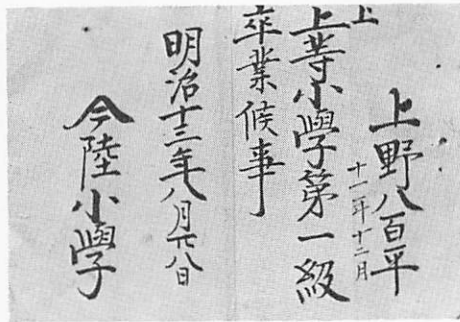 上
上野八百平
十一年十二月
上等小學第一級
卒業候事
明治十三年八月廿八日
今陸小學